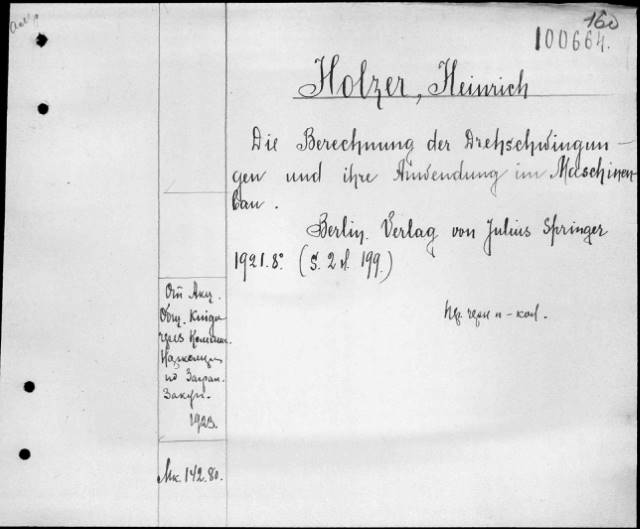 160
100664.
Holzer, Heinrich
Die Berechnung der Drehschwingun-
gen und ihre Anwendung im Maschinen-
bau.
Berlin. Verlag von Julius Springer
1921. 8° (S. 2 199.)
От Акц.
Общ. Книга
через
по Загран.
Закуп.
1923.
Мк. 142.80.